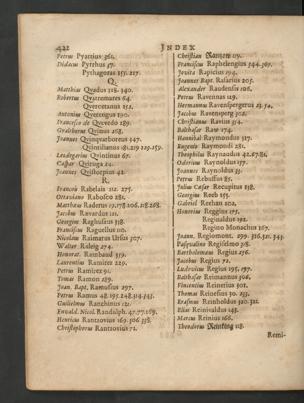 422 INDEX
Petrus Pyartius 361.
Didacus Pyrrhus 57.
Pythagoras 155. 217.
Q.
Matthias Quadus 118. 340.
Robertus Quatremares 64.
Quercetanus 251.
Antonius Quetrigus 190.
Francisco de Quevedo 289.
Gualtherus Quinus 268.
Joannes Quinquarboreus 347.
Quintilianus 181. 219 229. 259.
Leodegarius Quintinus 67.
Caspar Quiroga 24.
Joannes Quistorpius 42.
R.
Francois Rabelais 212. 275.
Ottaviano Rabosco 281.
Matthæus Raderus 19. 178 206. 218. 268.
Jacobus Ravardus 211.
Georgius Raghusius 318.
Franciscus Raguellus 110.
Nicolaus Raimarus Ursus 307.
Walter Raleg 274.
Honorat. Rambaud 359.
Laurentius Ramirez 229.
Petrus Ramirez 91.
Tomas Ramon 189.
Jean. Bapt. Ramusius 297.
Petrus Ramus 48. 195. 248. 314. 345.
Guilielmus Ranchinus 121.
Ewald. Nicol. Randolph. 47. 77. 169.
Henricus Rantzovius 169. 306 338.
Christophorus Rantzovius 72.
Christian Rantzow 119.
Franciscus Raphelengius 344. 367.
Jovita Rapicius 194.
Joannes Bapt. Rasarius 205.
Alexander Raudensis 106.
Petrus Ravennas 219.
Hermannus Ravenspergerus 23. 54.
Jacobus Ravensperg 302.
Christianus Ravius 354.
Balthasar Raw 174.
Hannibal Raymondus 317.
Eugenio Raymondi 281.
Theophilus Raynaudus 42. 67. 84.
Odericus Raynoldus 137.
Joannes Raynoldus 33.
Petrus Rebuffus 85.
Julius Cæsar Recupitus 158.
Georgius Reeb 155.
Gabriel Reehan 202.
Honorius Reggius 175.
Reginaldus 192.
Regino Monachus 167.
Joann. Regiomont. 299. 316. 321. 343.
Pasqualino Regiselmo 308.
Bartholomæus Regius 256.
Jacobus Regius 72.
Ludovicus Regius 195. 197.
Balthasar Reimannus 306.
Vincentius Reinerius 302.
Thomas Reinesius 30. 233.
Erasmus Reinholdus 320. 321.
Elias Reinivaldus 145.
Marcus Reinius 166.
Theodorus Reinking 118.
Remi-